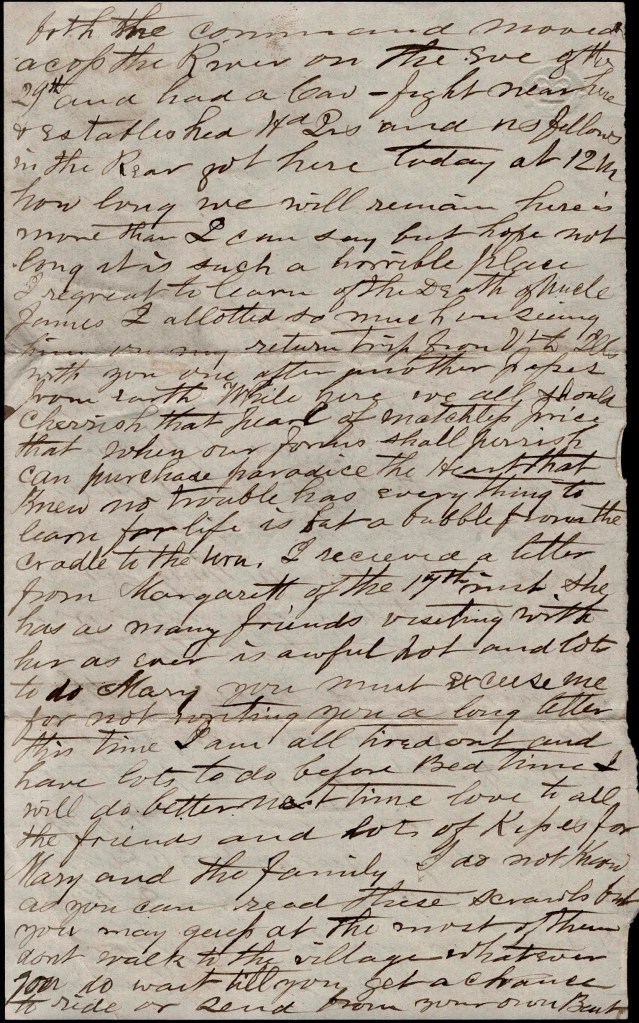 both the command moved
across the River on the Eve of the
29th and had a Cav - fight near here
& Established Hd Qrs and us fellows
in the Rear got here today at 12 M
how long we will remain here is
more than I can say but hope not
long it is such a horrible place
I regreat to learn of the Death of Uncle
James I allotted so much on seeing
him on my return trip from
with you one after another passes
from Earth While here we all should
cherish that pearl of matchless price
that when our forms shall perrish
can purchase paradice the Heart that
Knew no trouble has everything to
learn for life is but a bubble from the
cradle to the Urn. I recieved a letter
from Margarett of the 17th inst she
has as many friends visiting with
her as ever is awful hot and lots
to do Mary you must excuse me
for not writing you a long letter
this time I am all tired out and
have lots to do before Bed time I
will do better next time love to all
the friends and lots of Kisses for
Mary and the family I do not Know
as you can read these scrawls but
you may guess at the most of them
dont walk to the village whatever
you do wait till you get a chance
to ride or send from your own Bent